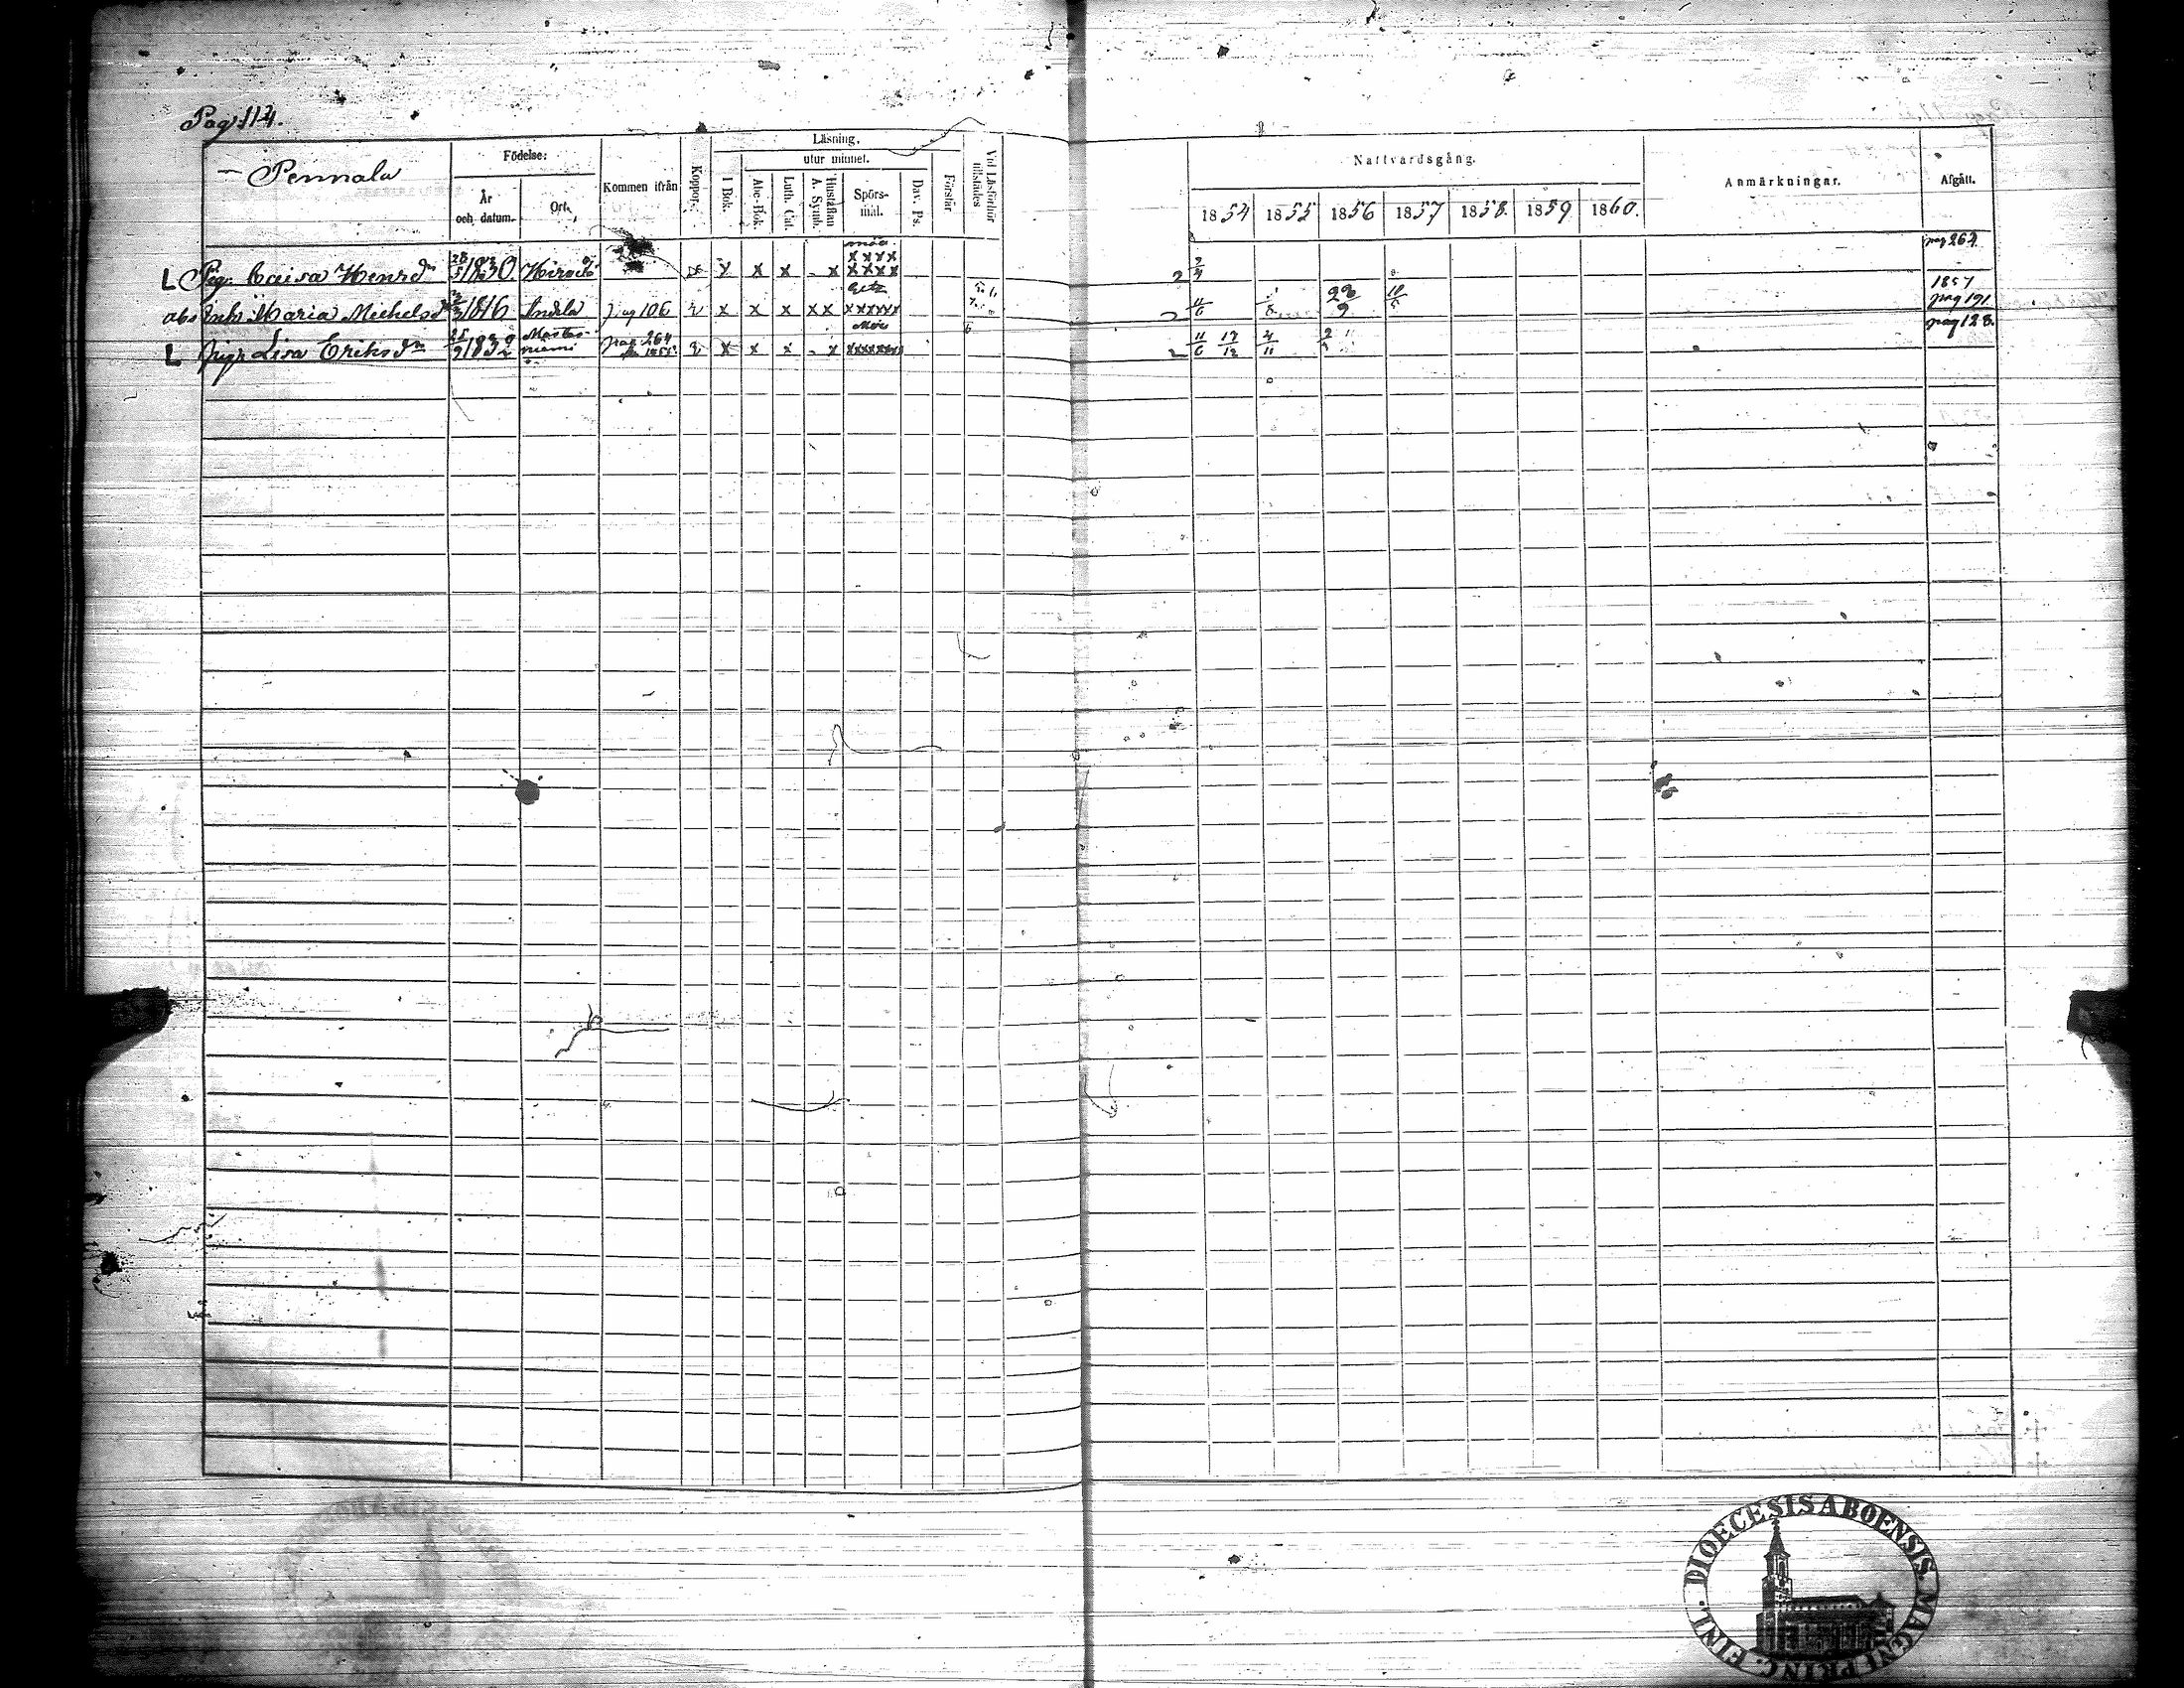 Pag. 114.
Pennala
Födelse:
År och datum.
Ort.
Kommen ifrån
Koppor.
Läsning.
utur minnet.
I Bok.
Abc-Bok.
Luth. Cat.
Hustaflan A. Symb.
Spörs-mål.
Dav. Ps.
Förstår
Vid Läsförhör tillstädes
Nattvardsgång.
1854 1855 1856 1857 1858. 1859 1860.
Anmärkningar.
Afgått.
L Pig. Caisa Henrsdr 28/5 1830 x x x - x x x x x x x x x 2 pag 264
abs Inh. Maria Michelsdr 1816 Andela pag 106 v x x x x x x x x x x x 11/6 23/9 10/5 1857 pag 191
L Pig. Lisa Eriksdr 25/9 1832 niemi pag 264 v x x x - x x x x x x x 2 11/6 17/12 4/11 pag 128.
DIOECESIS ABOENSIS. MAGNI PRINC. FINL.